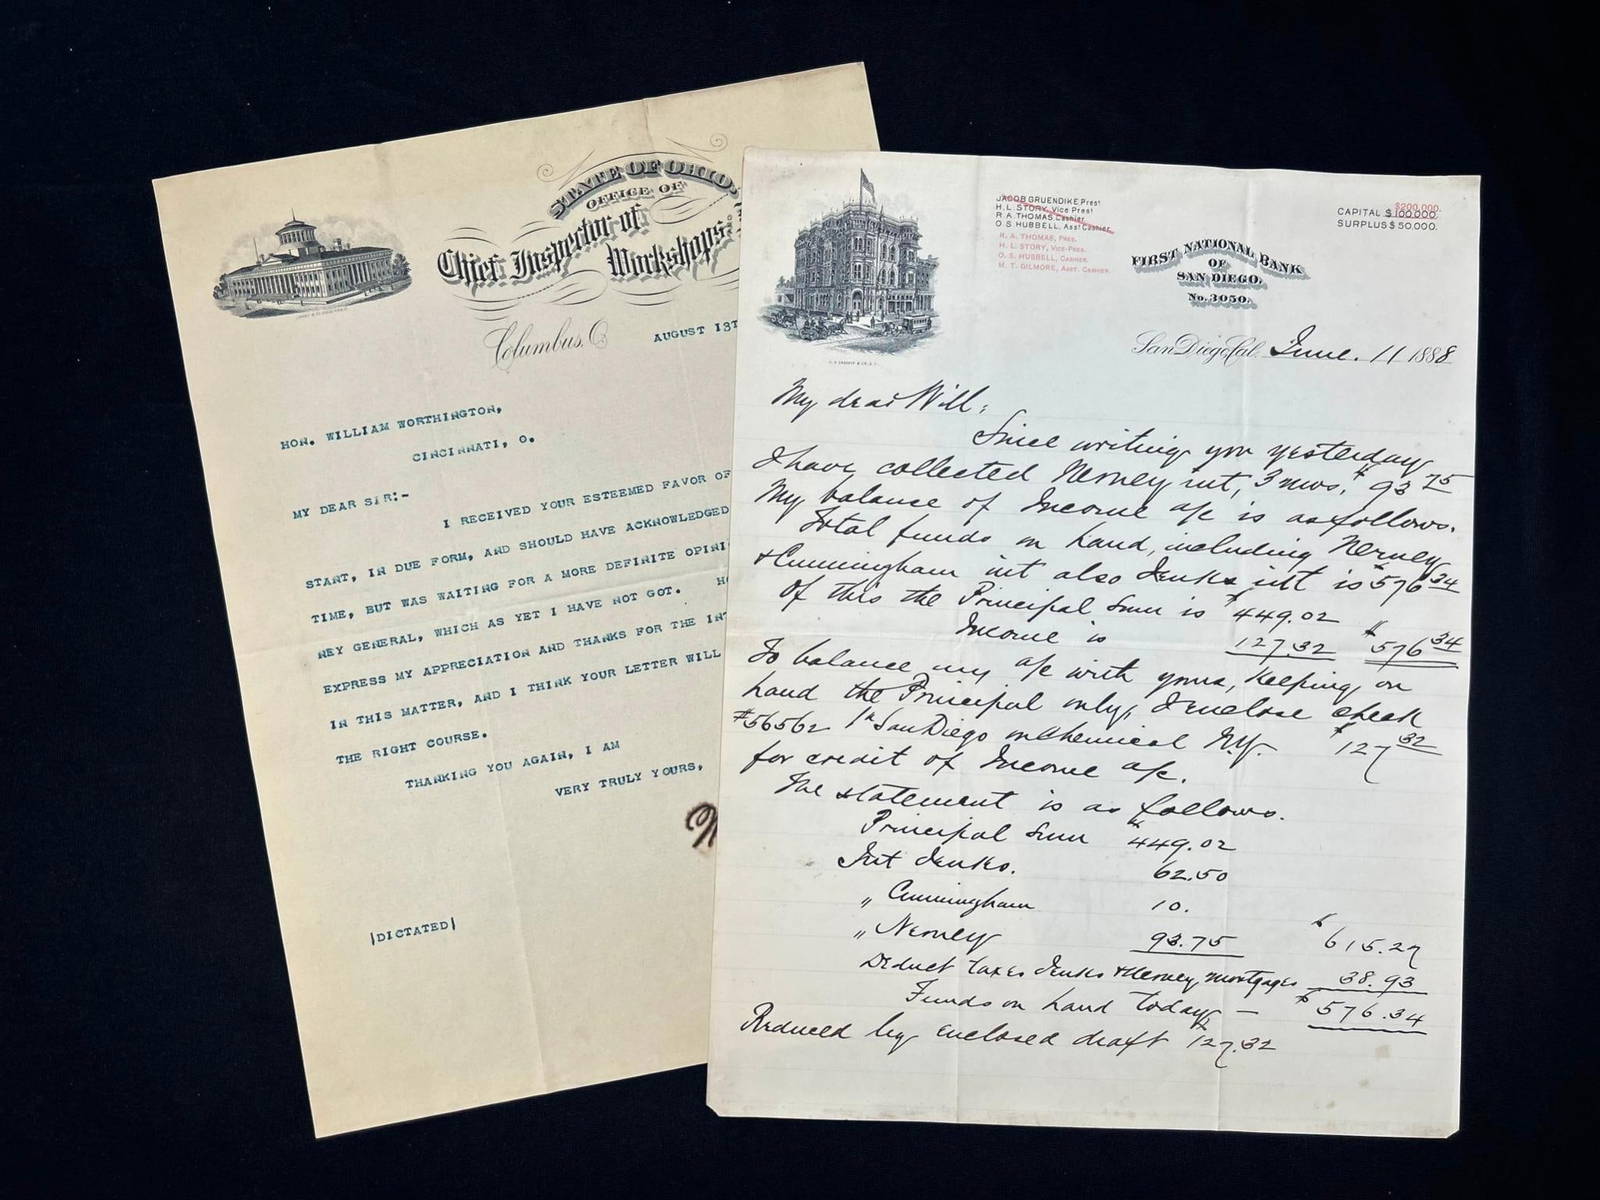 STATE OF OHIO,
OFFICE OF
Chief Inspector of
Workshops
Columbus, O.
AUGUST 13T
HON. WILLIAM WORTHINGTON,
CINCINNATI, O.
MY DEAR SIR:-
I RECEIVED YOUR ESTEEMED FAVOR OF
START, IN DUE FORM, AND SHOULD HAVE ACKNOWLEDGED
TIME, BUT WAS WAITING FOR A MORE DEFINITE OPINI
NEY GENERAL, WHICH AS YET I HAVE NOT GOT. HO
EXPRESS MY APPRECIATION AND THANKS FOR THE INT
IN THIS MATTER, AND I THINK YOUR LETTER WILL
THE RIGHT COURSE.
THANKING YOU AGAIN, I AM
VERY TRULY YOURS,
|DICTATED|
JACOB GRUENDIKE, Prest
H. L. STORY, Vice Prest
R. A. THOMAS Cashier
O. S. HUBBELL, Asst Cashier
R. A. THOMAS, PRES.
H. L. STORY, VICE-PRES.
O. S. HUBBELL, CASHIER.
M. T. GILMORE, ASST. CASHIER.
$200,000.
CAPITAL $100,000.
SURPLUS $50,000.
FIRST NATIONAL BANK
OF
SAN DIEGO.
No. 3050.
San Diego, Cal. June. 11 1888
My dear Will;
Since writing you yesterday
I have collected Nerney int, 3 mos. $93 75
My balance of Income a/c is as follows.
Total funds on hand, including Nerney
& Cunningham int also Jenks int is $576 34
Of this the Principal Sum is $449.02
Income is 127.32 $576 34
To balance my a/c with yours, keeping on
hand the Principal only, I enclose check
#56562 1st San Diego on Chemical N.Y. $127 32
for credit of Income a/c.
The statement is as follows.
Principal Sum $449.02
Int Jenks. 62.50
" Cunningham 10.
" Nerney 93.75 $615.27
Deduct taxes Jenks & Nerney mortgages 38.93
Funds on hand today — $576.34
Reduced by enclosed draft $127.32